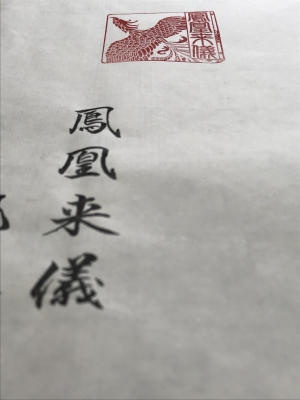 鳳凰来儀
鳳凰来儀